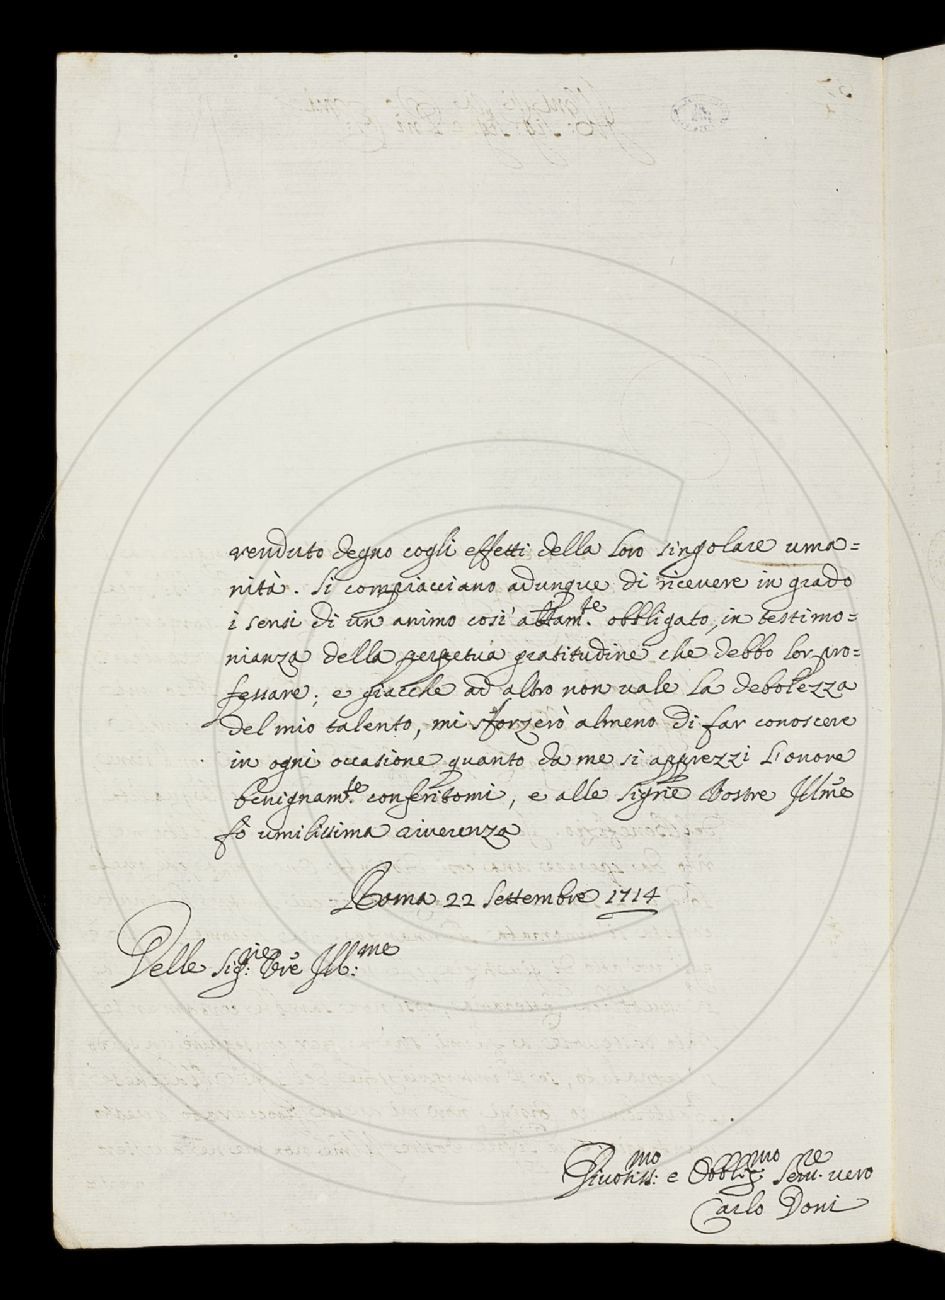 renduto degno cogli effetti della loro singolare uma=
nità. Si compiacciano adunque di ricevere in grado
i sensi di un animo così altam.te obbligato, in testimo=
nianza della perpetua gratitudine che debbo lor pro=
fessare; e giacche ad altro non vale la debolezza
del mio talento, mi sforzerò almeno di far conoscere
in ogni occasione quanto da me si apprezzi l'onore
benignam.te conferitomi, e alle Sig.rie Vostre Ill.me
fò umilissima riverenza
Roma 22 Settembre 1714
Delle Sig:rie Vre Ill:me
Divotiss:mo e Obblig:mo Serv.re vero
Carlo Doni